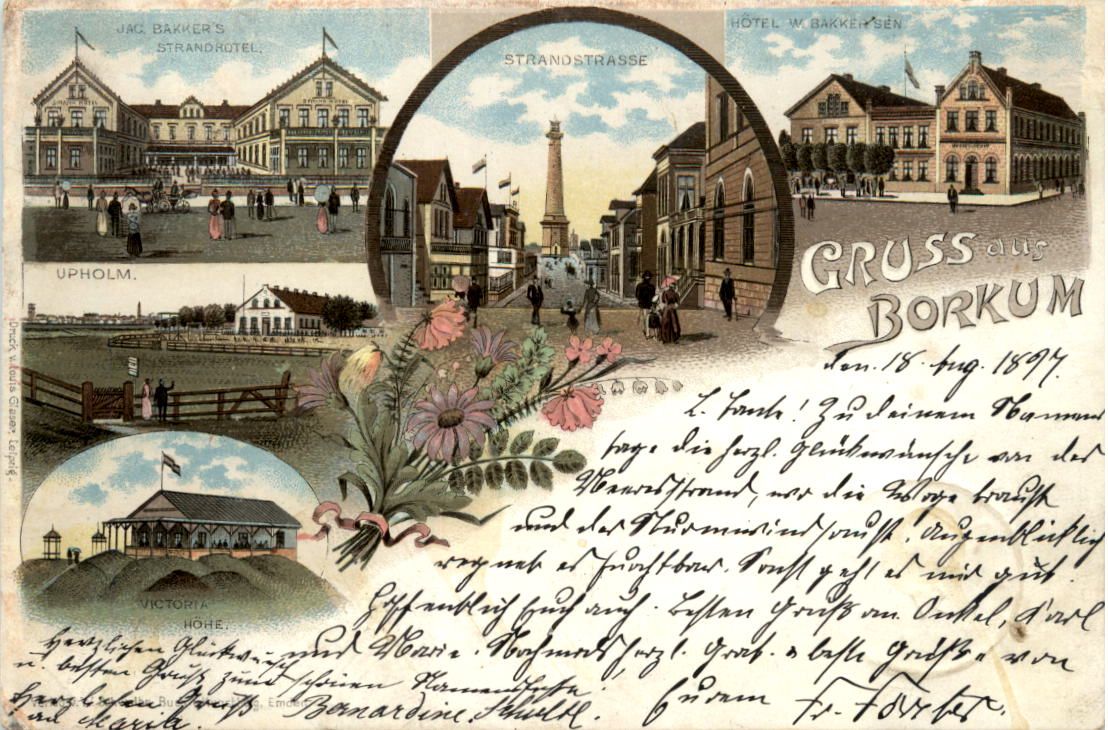 JAC. BAKKER'S
STRANDHOTEL.
STRANDSTRASSE
HÔTEL W. BAKKER SEN
STRAND HOTEL
STRAND HOTEL
UPHOLM.
GRUSS aus
BORKUM
den 18. Aug. 1897.
L. Tante! Zu deinem Namens
tage die herzl. Glückwünsche von des
Meeresstrand, wo die Woge braust
und der Sturmwind saust. Augenblicklich
regnet es furchtbar. Sonst geht es mir gut.
Hoffentlich Euch auch. Besten Gruß an Onkel, Karl
und Marie. Nochmals herzl. Grat. u beste Grüße von
Eurem Fr.
VICTORIA
HÖHE.
Herzlichen Glückwunsch
u. besten Gruß zum schönen Namensfeste
Bernardine
Herzlichen Gruß
an Maria.
Druck v. Louis Glaser, Leipzig.
Emden